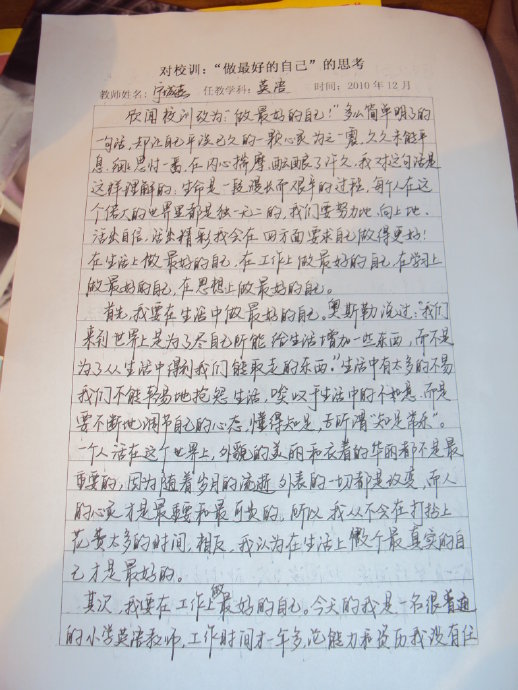 对校训：“做最好的自己”的思考
教师姓名： 任教学科：英语 时间：2010年12月
欣闻校训改为“做最好的自己！”多么简单明了的
一句话，却让自己平淡已久的一颗心灵为之一震，久久未能平
息。细细思忖一番，在内心揣摩、酝酿了许久，我对这句话是
这样理解的：生命是一段漫长而艰辛的过程，每个人在这
个偌大的世界里都是独一无二的，我们要努力地、向上地、
活出自信，活出精彩，我会在四方面要求自己做得更好！
在生活上做最好的自己，在工作上做最好的自己，在学习上
做最好的自己，在思想上做最好的自己。
首先，我要在生活中做最好的自己。奥斯勒说过：“我们
来到世界上是为了尽自己所能给生活增加一些东西，而不是
为了从生活中得到我们能取走的东西。”生活中有太多的不易
我们不能轻易地抱怨生活，唉叹乎生活中的不如意，而是
要不断地调节自己的心态，懂得知足，古所谓“知足常乐”。
一个人活在这个世界上，外貌的美丽和衣着的华丽都不是最
重要的，因为随着岁月的流逝，外表的一切都是改变，而人
的心灵才是最重要和最可贵的。所以我从不会在打扮上
花费太多的时间，相反，我认为在生活上做个最真实的自
己才是最好的。
其次，我要在工作上做最好的自己。今天的我是一名很普通
的小学英语教师，工作时间才一年多，论能力和资历我没有任